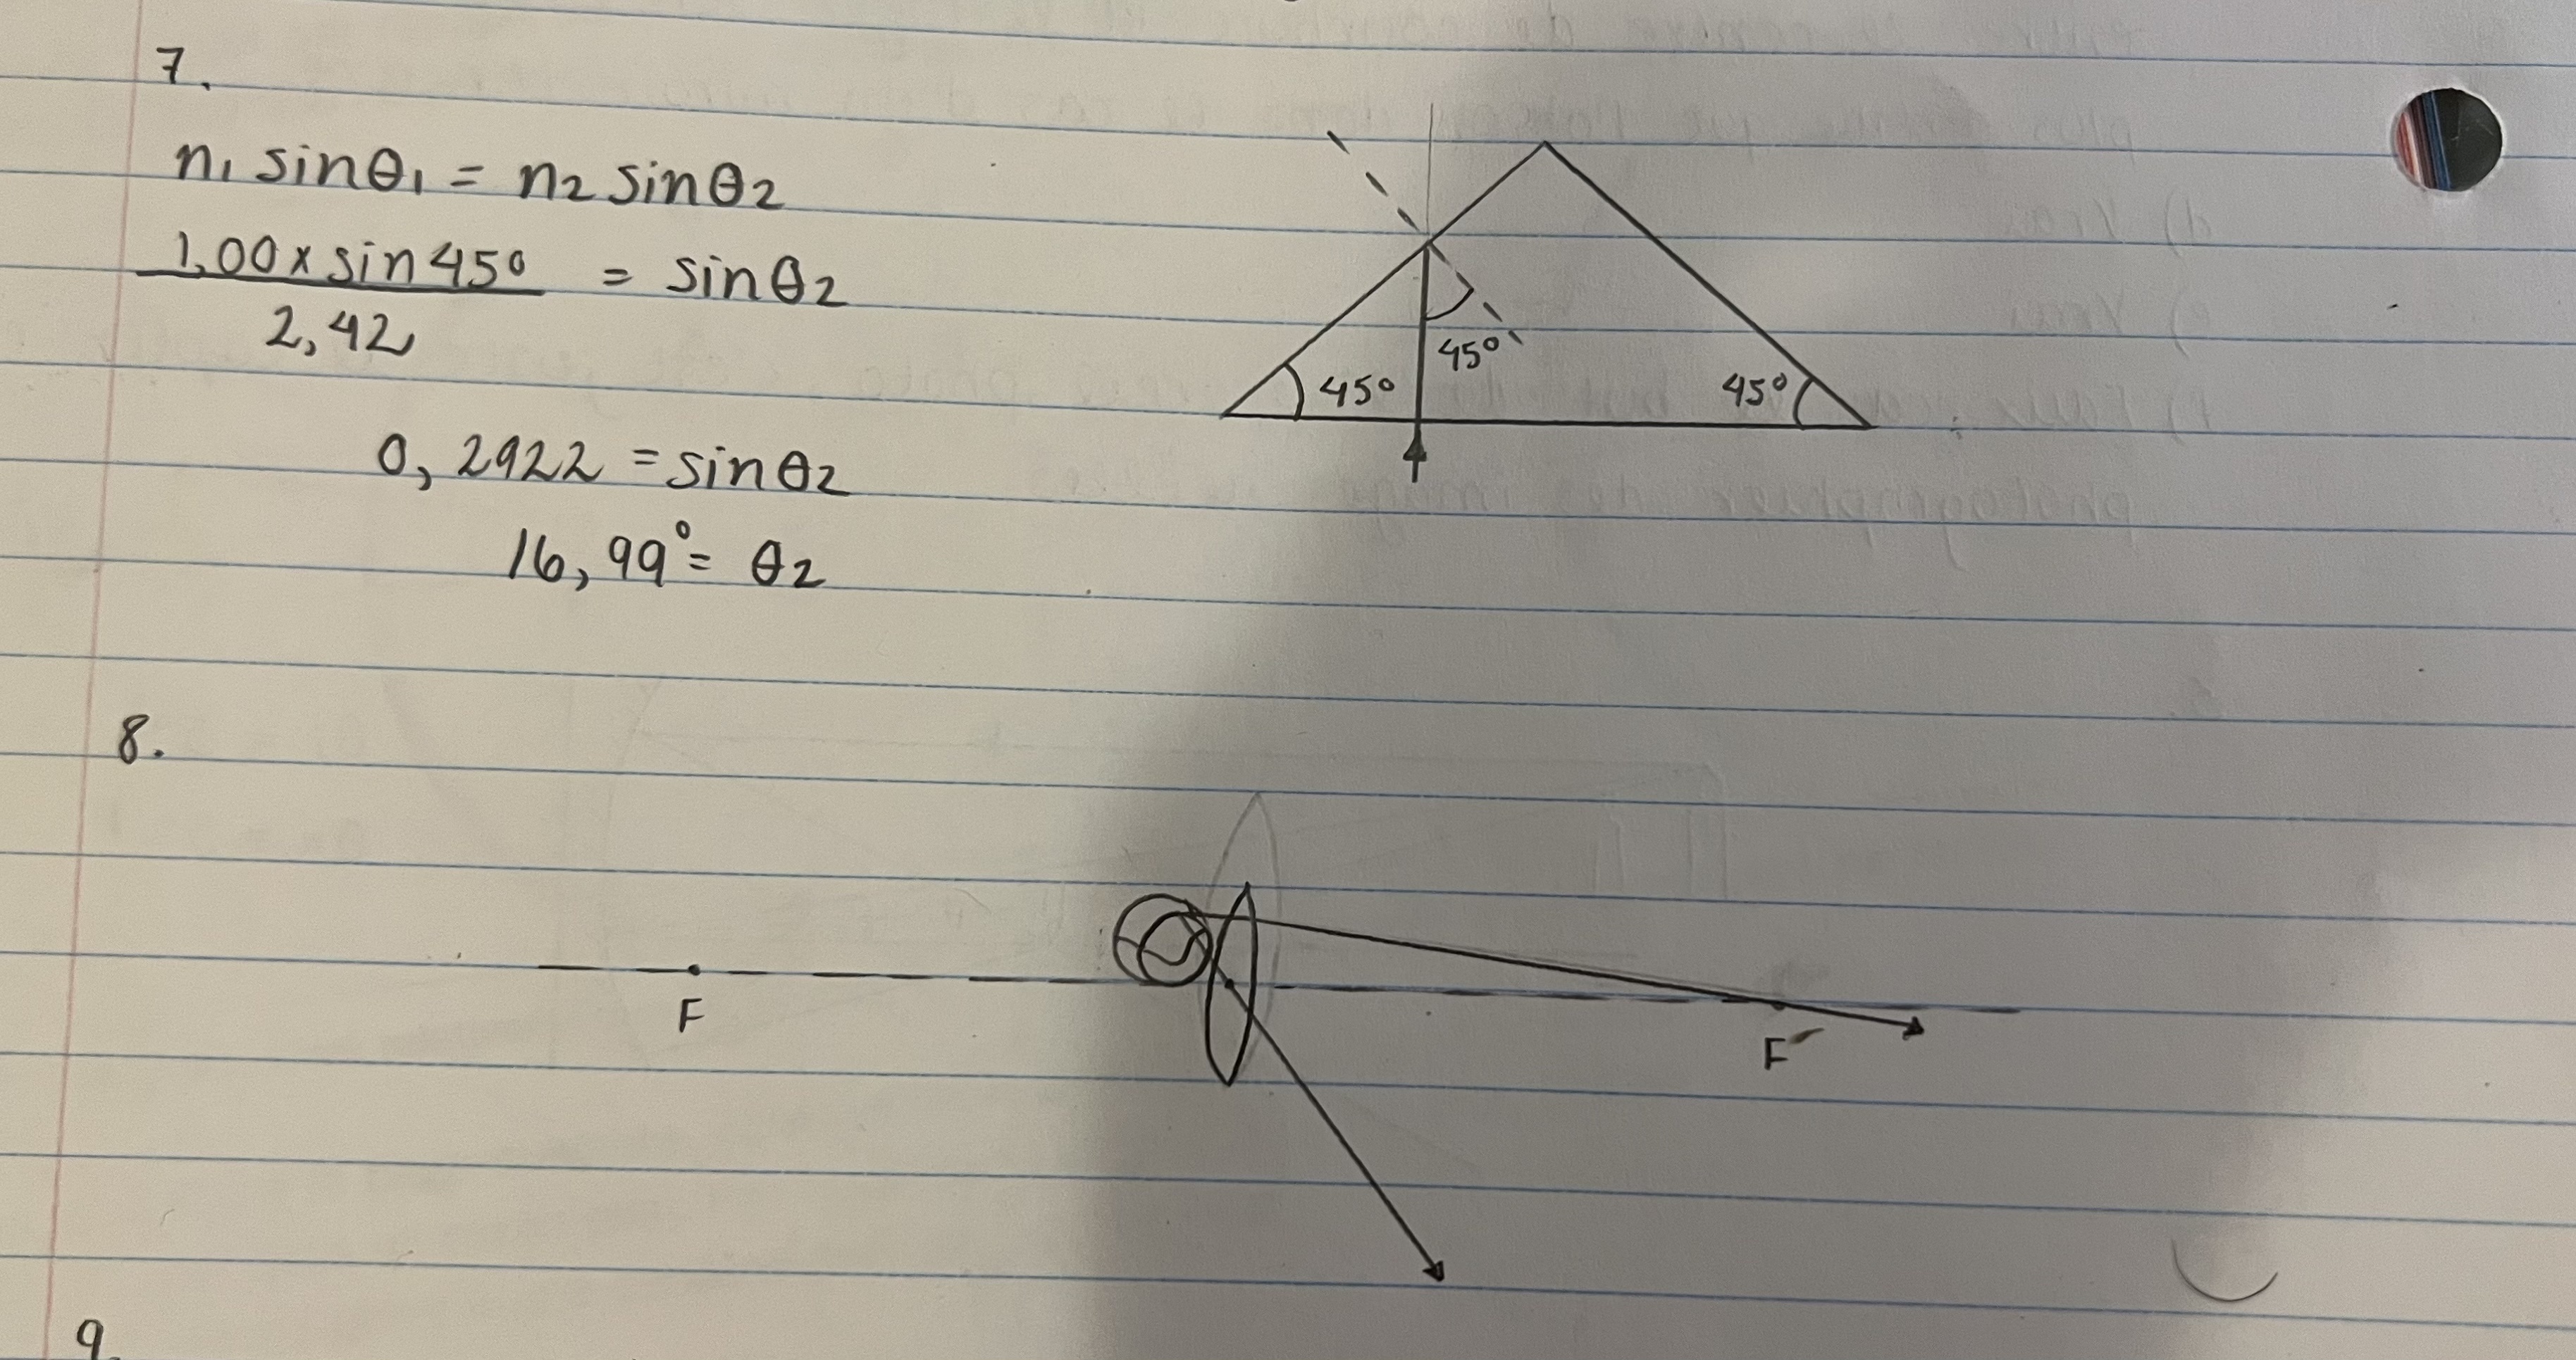 7.
n₁ sinθ₁ = n₂ sinθ₂
1,00 x sin 45° = sinθ₂
2,42
0,2922 = sinθ₂
16,99° = θ₂
45°
45°
45°
8.
F
F
9.